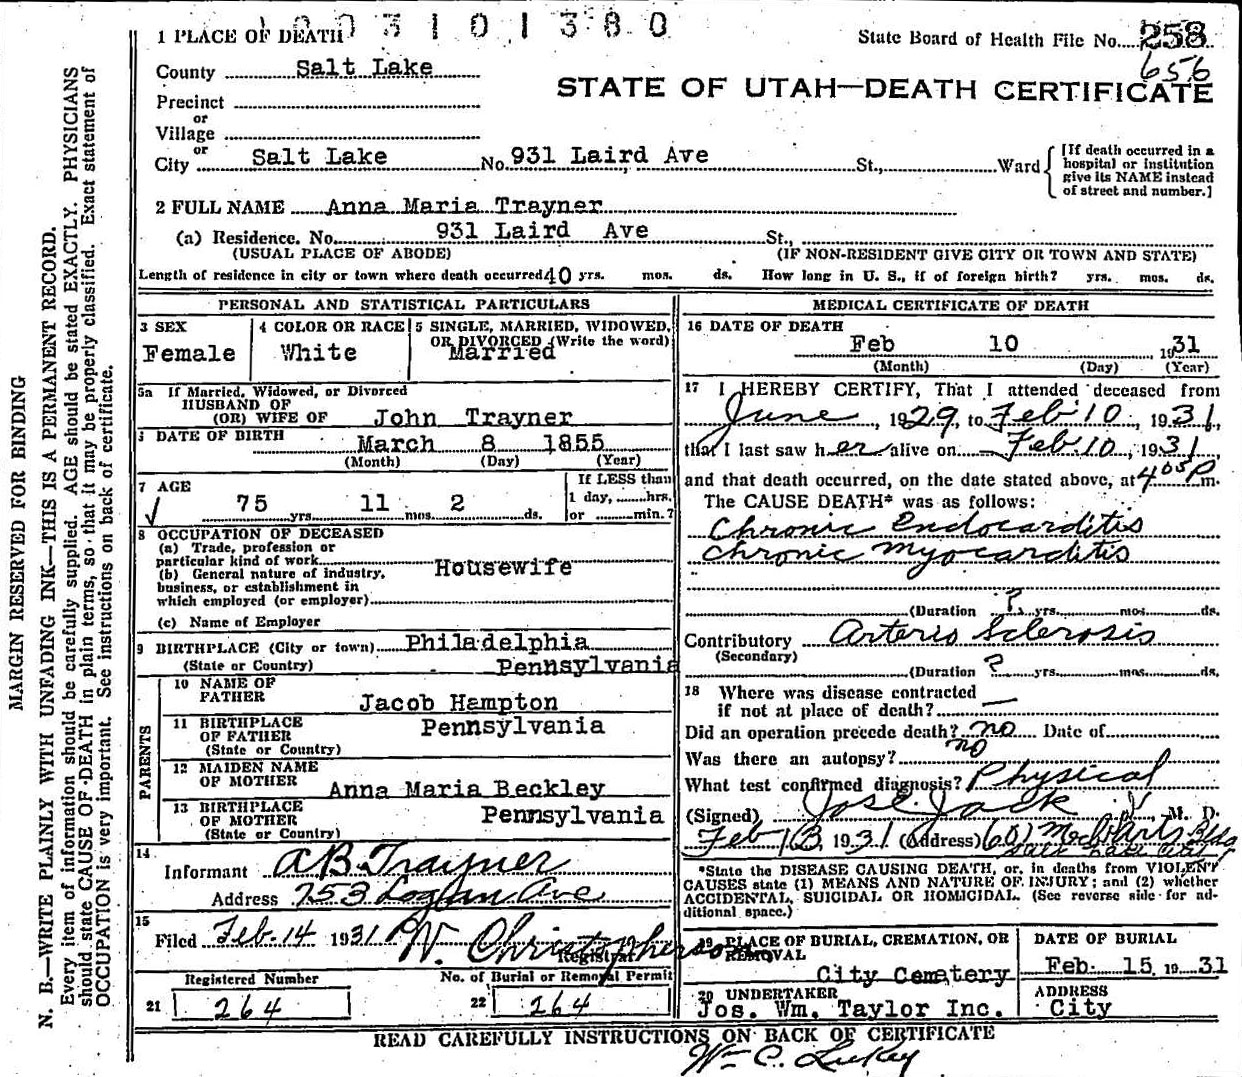 1003101380
1 PLACE OF DEATH
State Board of Health File No. 258
656
County Salt Lake
STATE OF UTAH—DEATH CERTIFICATE
Precinct
or
Village
or
City Salt Lake No. 931 Laird Ave St., Ward
[If death occurred in a hospital or institution give its NAME instead of street and number.]
2 FULL NAME Anna Maria Trayner
(a) Residence. No. 931 Laird Ave St.,
(USUAL PLACE OF ABODE) (IF NON-RESIDENT GIVE CITY OR TOWN AND STATE)
Length of residence in city or town where death occurred 40 yrs. mos. ds. How long in U. S., if of foreign birth? yrs. mos. ds.
PERSONAL AND STATISTICAL PARTICULARS
3 SEX
Female
4 COLOR OR RACE
White
5 SINGLE, MARRIED, WIDOWED,
OR DIVORCED (Write the word)
Married
5a If Married, Widowed, or Divorced
HUSBAND OF
(OR) WIFE OF John Trayner
DATE OF BIRTH March 8 1855
(Month) (Day) (Year)
7 AGE
75 yrs. 11 mos. 2 ds.
If LESS than
1 day, hrs.
or min.?
8 OCCUPATION OF DECEASED
(a) Trade, profession or
particular kind of work Housewife
(b) General nature of industry,
business, or establishment in
which employed (or employer)
(c) Name of Employer
9 BIRTHPLACE (City or town) Philadelphia
(State or Country) Pennsylvania
PARENTS
10 NAME OF
FATHER Jacob Hampton
11 BIRTHPLACE
OF FATHER Pennsylvania
(State or Country)
12 MAIDEN NAME
OF MOTHER Anna Maria Beckley
13 BIRTHPLACE
OF MOTHER Pennsylvania
(State or Country)
14
Informant A B Trayner
Address 753 Logan Ave
15
Filed Feb. 14 1931 W. Christopherson
Registrar
Registered Number
21 264
No. of Burial or Removal Permit
22 264
MEDICAL CERTIFICATE OF DEATH
16 DATE OF DEATH
Feb 10 1931
(Month) (Day) (Year)
17 I HEREBY CERTIFY, That I attended deceased from
June, 1929, to Feb 10, 1931,
that I last saw her alive on Feb. 10, 1931
and that death occurred, on the date stated above, at 405P m.
The CAUSE DEATH* was as follows:
Chronic Endocarditis
Chronic Myocarditis
(Duration ? yrs. mos. ds.
Contributory Arterio Sclerosis
(Secondary)
(Duration ? yrs. mos. ds.
18 Where was disease contracted
if not at place of death? —
Did an operation precede death? no Date of
Was there an autopsy? no
What test confirmed diagnosis? Physical
(Signed) Jos. E. Jack, M. D.
Feb 13, 1931 (Address) 601 Med. Arts Bldg
Salt Lake City
*State the DISEASE CAUSING DEATH, or, in deaths from VIOLENT
CAUSES state (1) MEANS AND NATURE OF INJURY; and (2) whether
ACCIDENTAL, SUICIDAL OR HOMICIDAL. (See reverse side for ad-
ditional space.)
19 PLACE OF BURIAL, CREMATION, OR
REMOVAL
City Cemetery
DATE OF BURIAL
Feb. 15, 1931
20 UNDERTAKER
Jos. Wm. Taylor Inc.
ADDRESS
City
READ CAREFULLY INSTRUCTIONS ON BACK OF CERTIFICATE
Wm C.
MARGIN RESERVED FOR BINDING
N. B.—WRITE PLAINLY WITH UNFADING INK—THIS IS A PERMANENT RECORD.
Every item of information should be carefully supplied. AGE should be stated EXACTLY. PHYSICIANS
should state CAUSE OF DEATH in plain terms, so that it may be properly classified. Exact statement of
OCCUPATION is very important. See instructions on back of certificate.